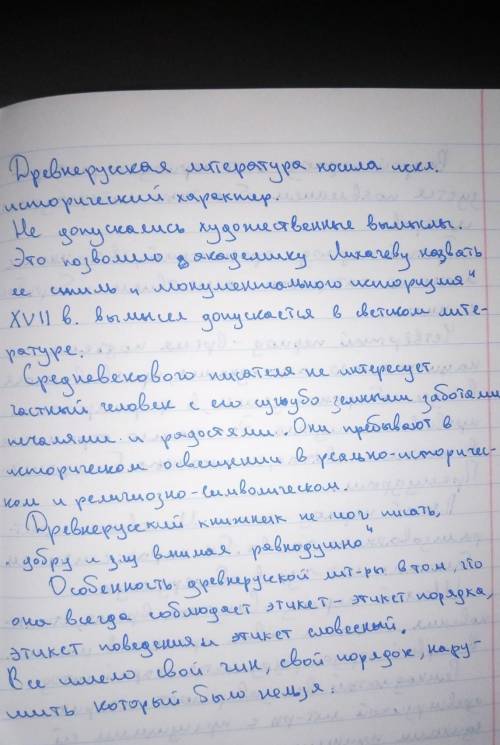 Древнерусская литература носила искл.
исторический характер.
Не допускались художественные вымыслы.
Это позволило академику Лихачеву назвать
ее стиль „монументального историзма"
XVII в. вымысел допускается в светской лите-
ратуре.
Средневекового писателя не интересует
частный человек с его сугубо земными заботами
печалями и радостями. Они пребывают в
историческом освещении в реально-историчес-
ком и религиозно-символическом.
Древнерусский книжник не мог писать,
„добру и злу внимая равнодушно"
Особенность древнеруской лит-ры в том, что
она всегда соблюдает этикет - этикет порядка,
этикет поведения и этикет словесный.
Все имело свой чин, свой порядок, нару-
шить который было нельзя.